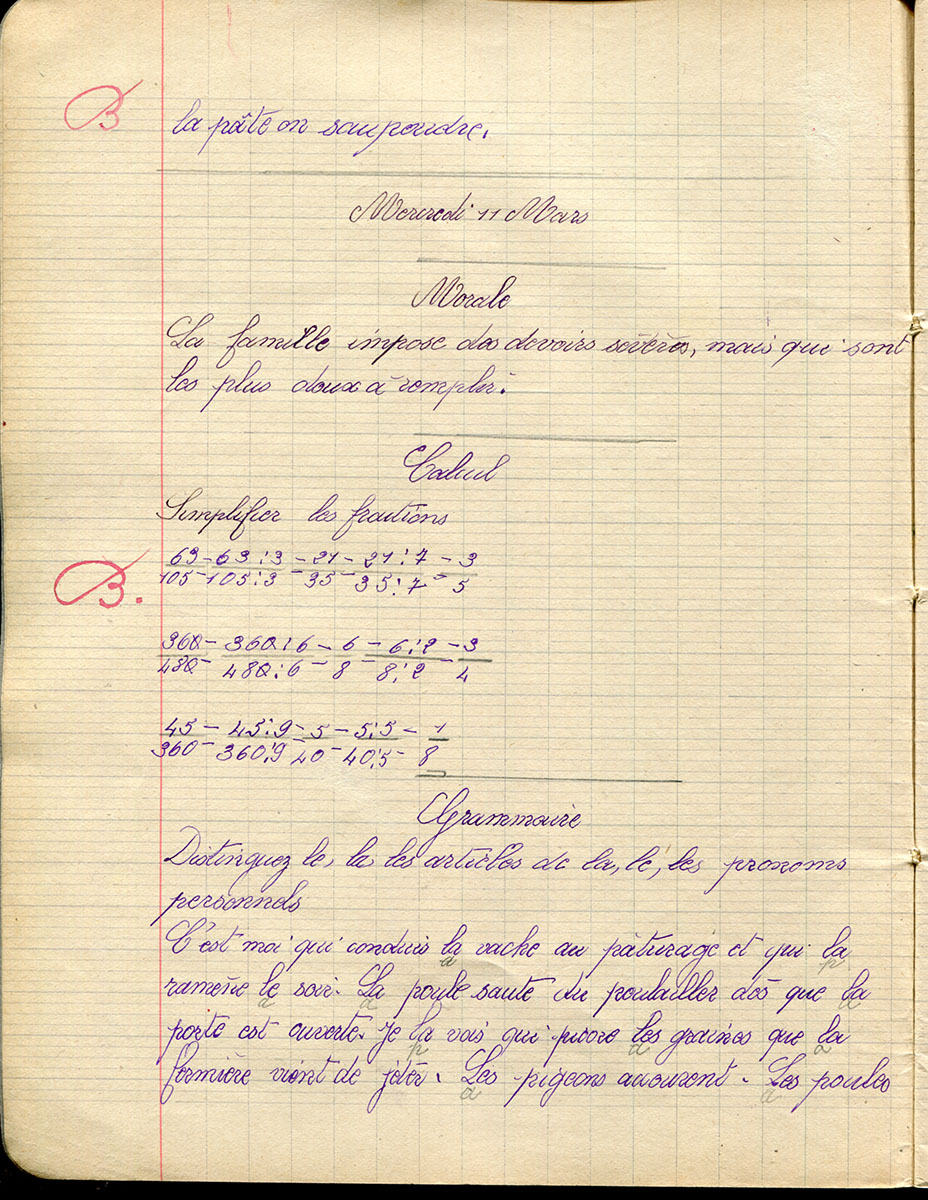 B
la pâte on saupoudre.
Mercredi 11 Mars
Morale
La famille impose des devoirs sévères, mais qui sont
les plus doux à remplir.
Calcul
Simplifier les fractions
63/105 = 63:3/105:3 = 21/35 = 21:7/35:7 = 3/5
B.
360/480 = 360:6/480:6 = 6/8 = 6:2/8:2 = 3/4
45/360 = 45:9/360:9 = 5/40 = 5:5/40:5 = 1/8
Grammaire
Distinguez le, la les articles de la, le, les pronoms
personnels
C'est moi qui conduis la vache au pâturage et qui la
a p
ramène le soir. La poule saute du poulailler dès que la
a a a
porte est ouverte. Je la vois qui picore les graines que la
p a a
fermière vient de jeter. Les pigeons accourent. Les poules
a a